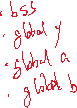 .bss
.global y
.global a
.global b